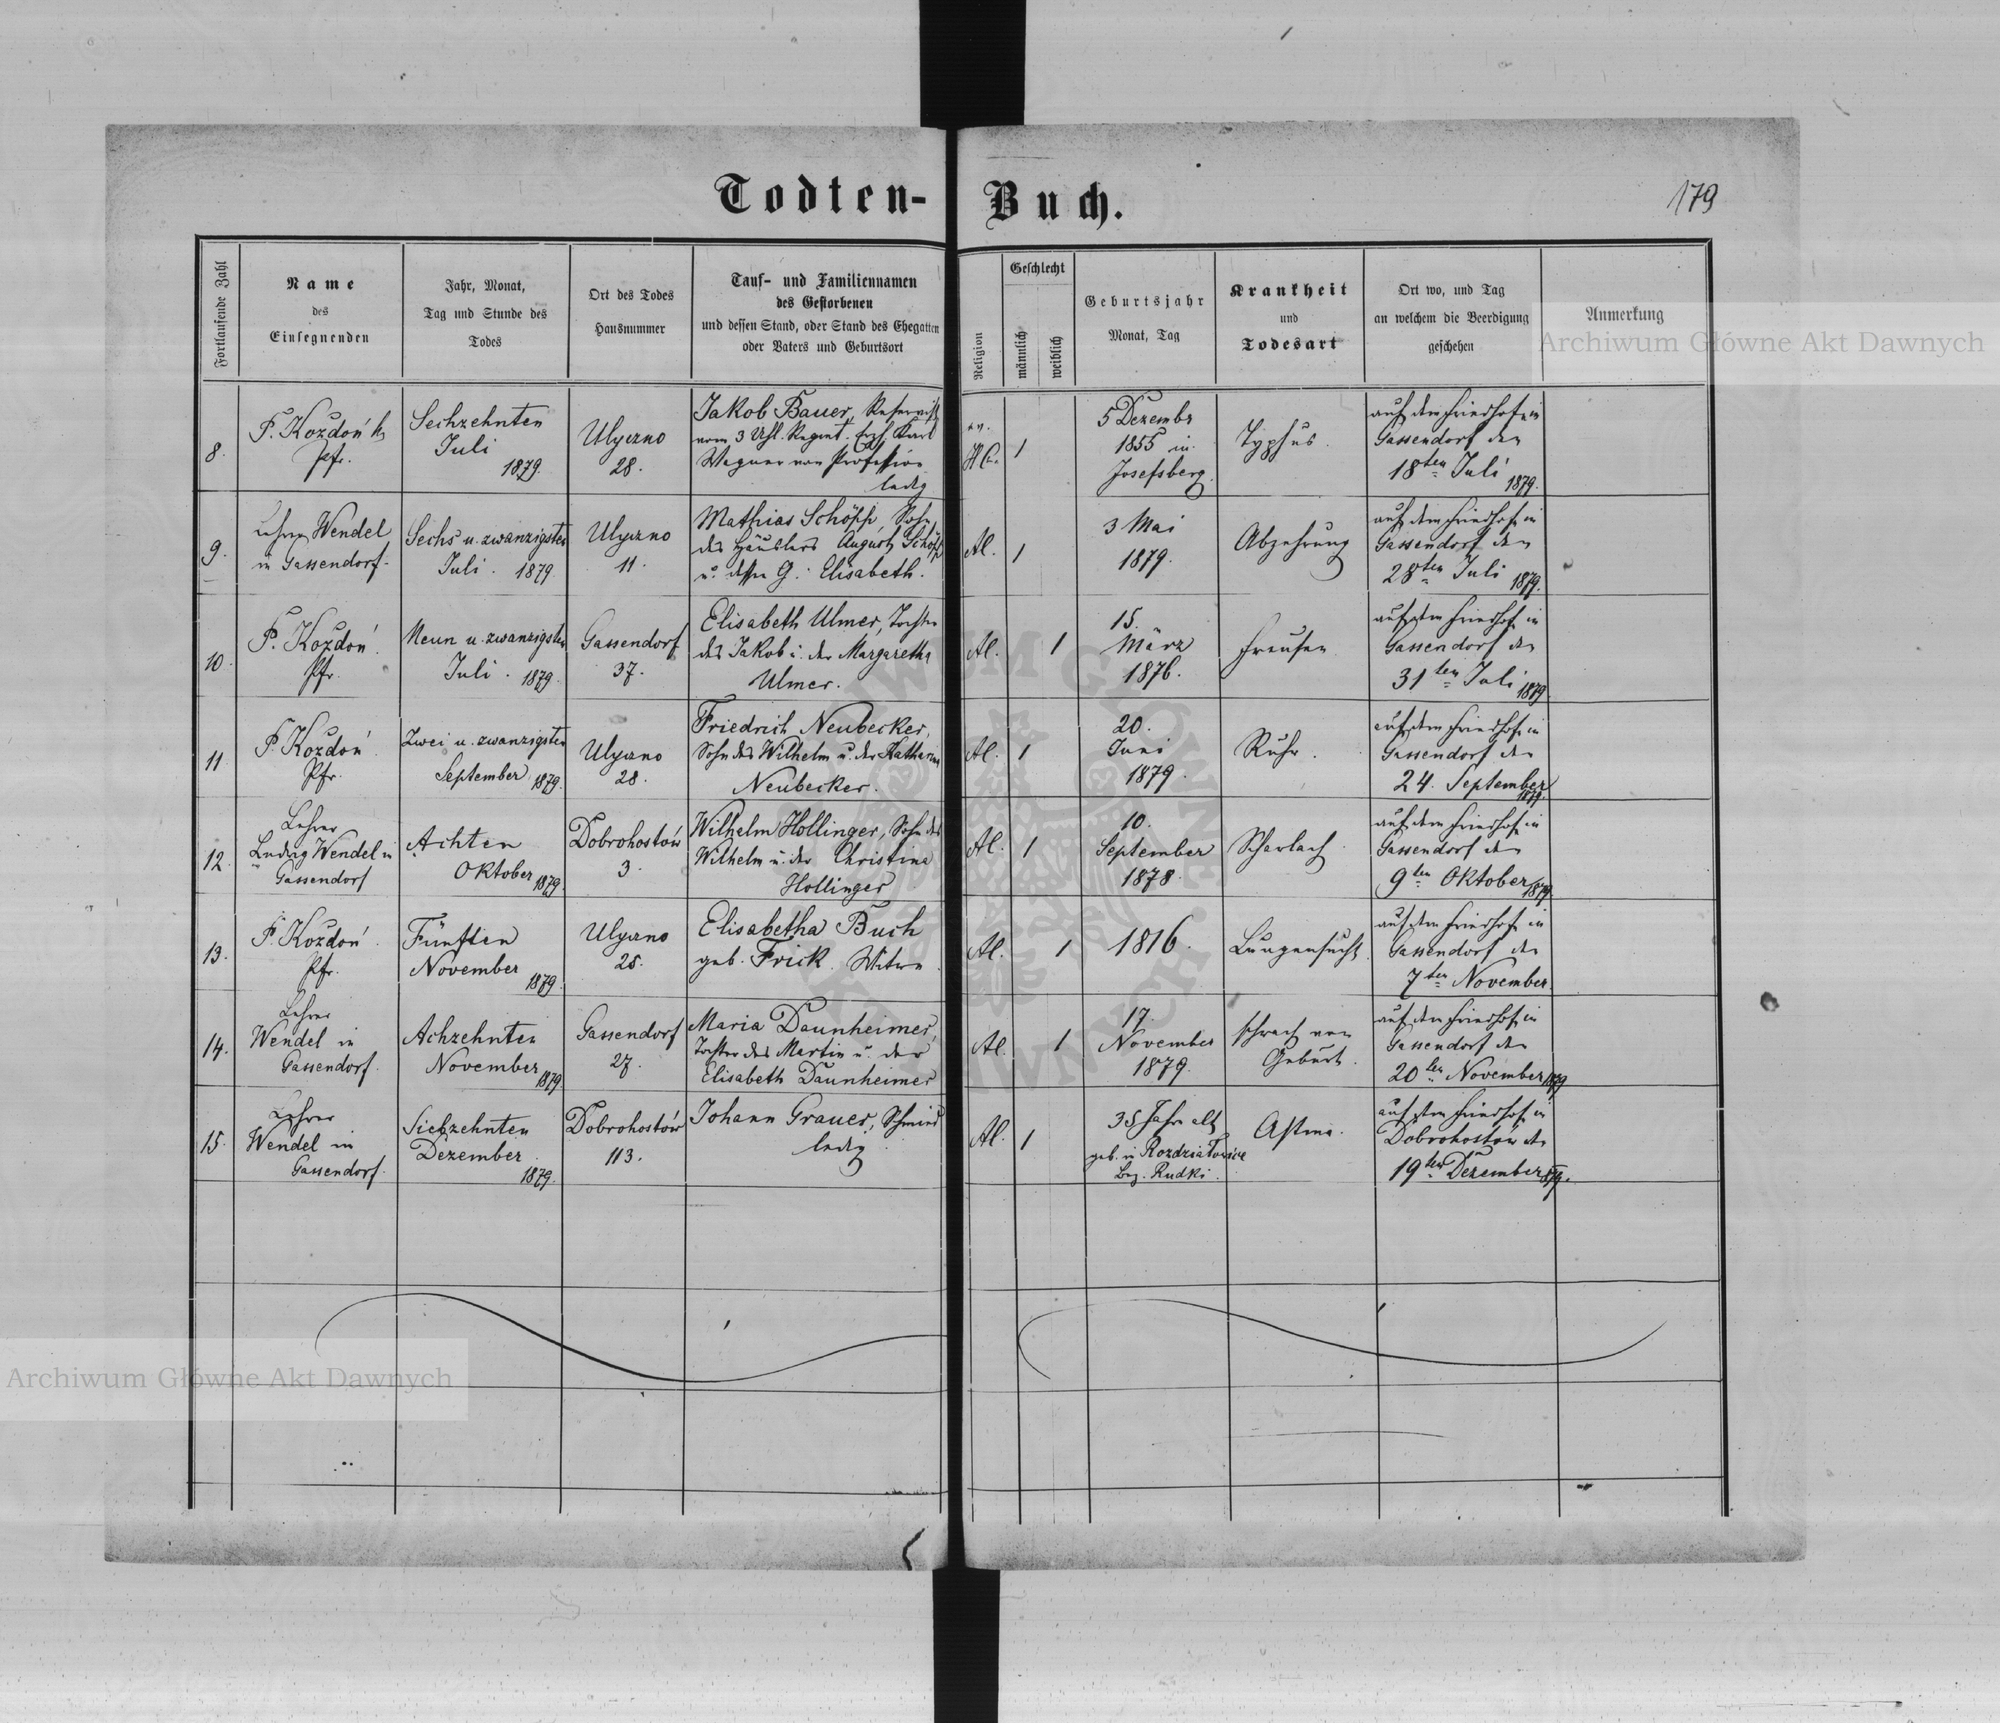 Todten-Buch.
179
Fortlaufende Zahl
Name
des
Einsegnenden
Jahr, Monat,
Tag und Stunde des
Todes
Ort des Todes
Hausnummer
Tauf- und Familiennamen
des Gestorbenen
und dessen Stand, oder Stand des Ehegatten
oder Vaters und Geburtsort
Religion
Geschlecht
männlich
weiblich
Geburtsjahr
Monat, Tag
Krankheit
und
Todesart
Ort wo, und Tag
an welchem die Beerdigung
geschehen
Anmerkung
8.
P. Kozdoń
Pfr.
Sechzehnten
Juli
1879.
Ulyczno
28.
Jakob Bauer, Reservist
vom 3 Regmt. Erzh. Karl
Wagner von Profession
ledig
ev.
H.C.
1
5 Dezembr
1855 in
Josefsberg.
Typhus.
auf dem Friedhofe in
Gassendorf den
18ten Juli 1879.
9.
Lehrer Wendel
in Gassendorf.
Sechs u. zwanzigsten
Juli. 1879
Ulyczno
11.
Mathias Schöpp, Sohn
des Häuslers August Schöpp
u. dessen G. Elisabeth.
Al.
1
3 Mai
1879.
Abzehrung
auf dem Friedhofe in
Gassendorf den
28ten Juli 1879.
10.
P. Kozdoń
Pfr.
Neun u. zwanzigsten
Juli. 1879
Gassendorf
37.
Elisabeth Ulmer, Tochter
des Jakob u. der Margaretha
Ulmer.
Al.
1
15.
März
1876.
Freusen
auf dem Friedhofe in
Gassendorf den
31ten Juli 1879
11
P. Kozdoń
Pfr.
Zwei u. zwanzigsten
September 1879.
Ulyczno
28.
Friedrich Neubecker,
Sohn des Wilhelm u. der Katharina
Neubecker.
Al.
1
20.
Juni
1879.
Ruhr.
auf dem Friedhofe in
Gassendorf den
24. September
1879.
12.
Lehrer
Ludwig Wendel in
Gassendorf
Achten
Oktober 1879.
Dobrohostów
3.
Wilhelm Hollinger, Sohn des
Wilhelm u. der Christina
Hollinger
Al.
1
10.
September
1878.
Scharlach.
auf dem Friedhofe in
Gassendorf den
9ten Oktober 1879
13.
P. Kozdoń
Pfr.
Fünften
November 1879.
Ulyczno
25.
Elisabetha Buch
geb. Frick. Witwe
Al.
1
1816.
Lungensucht.
auf dem Friedhofe in
Gassendorf den
7ten November
14.
Lehrer
Wendel in
Gassendorf.
Achzehnten
November 1879
Gassendorf
27.
Maria Daunheimer,
Tochter des Martin u. der
Elisabeth Daunheimer
Al.
1
17.
November
1879.
schwach von
Geburt.
auf dem Friedhofe in
Gassendorf den
20ten November 1879
15.
Lehrer
Wendel in
Gassendorf.
Siebzehnten
Dezember
1879.
Dobrohostów
113.
Johann Grauer, Schmied
ledig
Al.
1
35 Jahr alt
geb. in Rozdziałowice
Bez. Rudki.
Astma.
auf dem Friedhofe in
Dobrohostów den
19ten Dezember 1879.
Archiwum Główne Akt Dawnych
Archiwum Główne Akt Dawnych